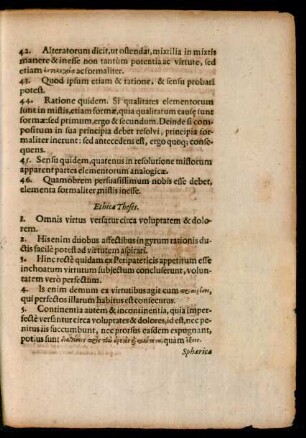 42. Alteratorum dicit, ut ostendat, mixtilia in mixtis
manere & inesse non tantùm potentia ac virtute, sed
etiam ac formaliter.
43. Quod ipsum etiam & ratione, & sensu probari
potest.
44. Ratione quidem. Si qualitates elementorum
sunt in mistis, etiam formæ, qua qualitatum causæ sunt
formæ: sed primum, ergo & secundum. Deinde si com-
positum in sua principia debet resolvi, principia for-
maliter inerunt: sed antecedens est, ergo quoq; conse-
quens.
45. Sensu quidem, quatenus in resolutione mistorum
apparent partes elementorum analogicæ.
46. Quamobrem persuasissimum nobis esse debet,
elementa formaliter mistis inesse.
Ethicæ Theses.
1. Omnis virtus versatur circa voluptatem & dolo-
rem.
2. His enim duobus affectibus in gyrum rationis du-
ctis facilè potest ad virtutem aspirari.
3. Hinc rectè quidam ex Peripateticis appetitum esse
inchoatum virtutum subjectum concluserunt, volun-
tatem verò perfectum.
4. Is enim demum ex virtutibus agit cum
qui perfectos illarum habitus est consecutus.
5. Continentia autem & incontinentia, quia imper-
fectè versantur circa voluptates & dolores, id est, nec pe-
nitus iis succumbunt, nec prorsus easdem expugnant,
potius sunt quàm
Sphærica